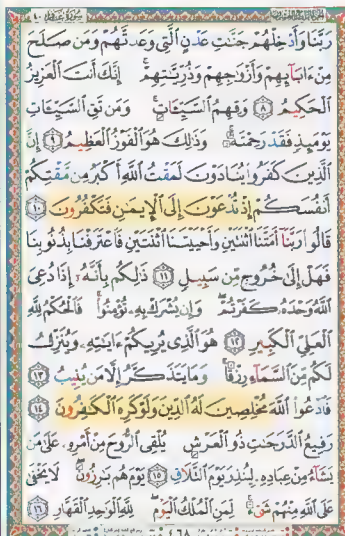 رَبَّنَا وَأَدْخِلْهُمْ جَنَّٰتِ عَدْنٍ ٱلَّتِى وَعَدتَّهُمْ وَمَن صَلَحَ
مِنْ ءَابَآئِهِمْ وَأَزْوَٰجِهِمْ وَذُرِّيَّٰتِهِمْ ۚ إِنَّكَ أَنتَ ٱلْعَزِيزُ
ٱلْحَكِيمُ ٨ وَقِهِمُ ٱلسَّيِّـَٔاتِ ۚ وَمَن تَقِ ٱلسَّيِّـَٔاتِ
يَوْمَئِذٍ فَقَدْ رَحِمْتَهُۥ ۚ وَذَٰلِكَ هُوَ ٱلْفَوْزُ ٱلْعَظِيمُ ٩ إِنَّ
ٱلَّذِينَ كَفَرُوا۟ يُنَادَوْنَ لَمَقْتُ ٱللَّهِ أَكْبَرُ مِن مَّقْتِكُمْ
أَنفُسَكُمْ إِذْ تُدْعَوْنَ إِلَى ٱلْإِيمَٰنِ فَتَكْفُرُونَ ١٠
قَالُوا۟ رَبَّنَآ أَمَتَّنَا ٱثْنَتَيْنِ وَأَحْيَيْتَنَا ٱثْنَتَيْنِ فَٱعْتَرَفْنَا بِذُنُوبِنَا
فَهَلْ إِلَىٰ خُرُوجٍ مِّن سَبِيلٍ ١١ ذَٰلِكُم بِأَنَّهُۥٓ إِذَا دُعِىَ
ٱللَّهُ وَحْدَهُۥ كَفَرْتُمْ ۖ وَإِن يُشْرَكْ بِهِۦ تُؤْمِنُوا۟ ۚ فَٱلْحُكْمُ لِلَّهِ
ٱلْعَلِىِّ ٱلْكَبِيرِ ١٢ هُوَ ٱلَّذِى يُرِيكُمْ ءَايَٰتِهِۦ وَيُنَزِّلُ
لَكُم مِّنَ ٱلسَّمَآءِ رِزْقًا ۚ وَمَا يَتَذَكَّرُ إِلَّا مَن يُنِيبُ ١٣
فَٱدْعُوا۟ ٱللَّهَ مُخْلِصِينَ لَهُ ٱلدِّينَ وَلَوْ كَرِهَ ٱلْكَٰفِرُونَ ١٤
رَفِيعُ ٱلدَّرَجَٰتِ ذُو ٱلْعَرْشِ يُلْقِى ٱلرُّوحَ مِنْ أَمْرِهِۦ عَلَىٰ مَن
يَشَآءُ مِنْ عِبَادِهِۦ لِيُنذِرَ يَوْمَ ٱلتَّلَاقِ ١٥ يَوْمَ هُم بَٰرِزُونَ ۖ لَا يَخْفَىٰ
عَلَى ٱللَّهِ مِنْهُمْ شَىْءٌ ۚ لِّمَنِ ٱلْمُلْكُ ٱلْيَوْمَ ۖ لِلَّهِ ٱلْوَٰحِدِ ٱلْقَهَّارِ ١٦
٤٦٨